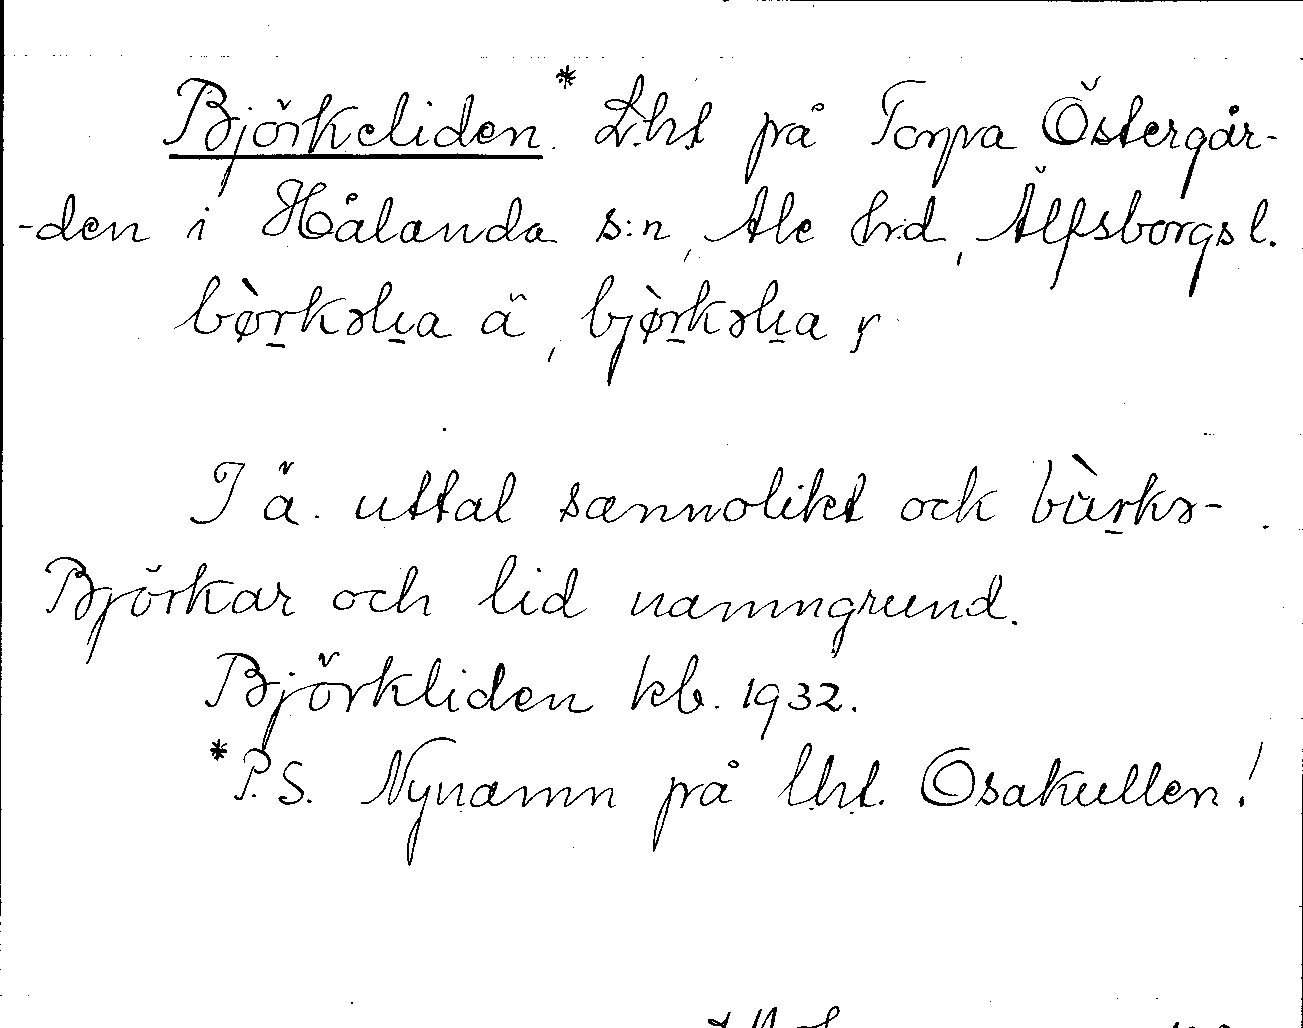 Björkeliden.* L.h.t på Torpa Östergår-
-den i Hålanda s:n, Ale h:d, Älfsborgs l.
bø̀rkəlıa ä, bjø̀rkəlıa y
I ä. uttal sannolikt ock bùrkə-
Björkar och lid namngrund.
Björkliden kb. 1932.
*P.S. Nynamn på l.h.t. Osakullen!